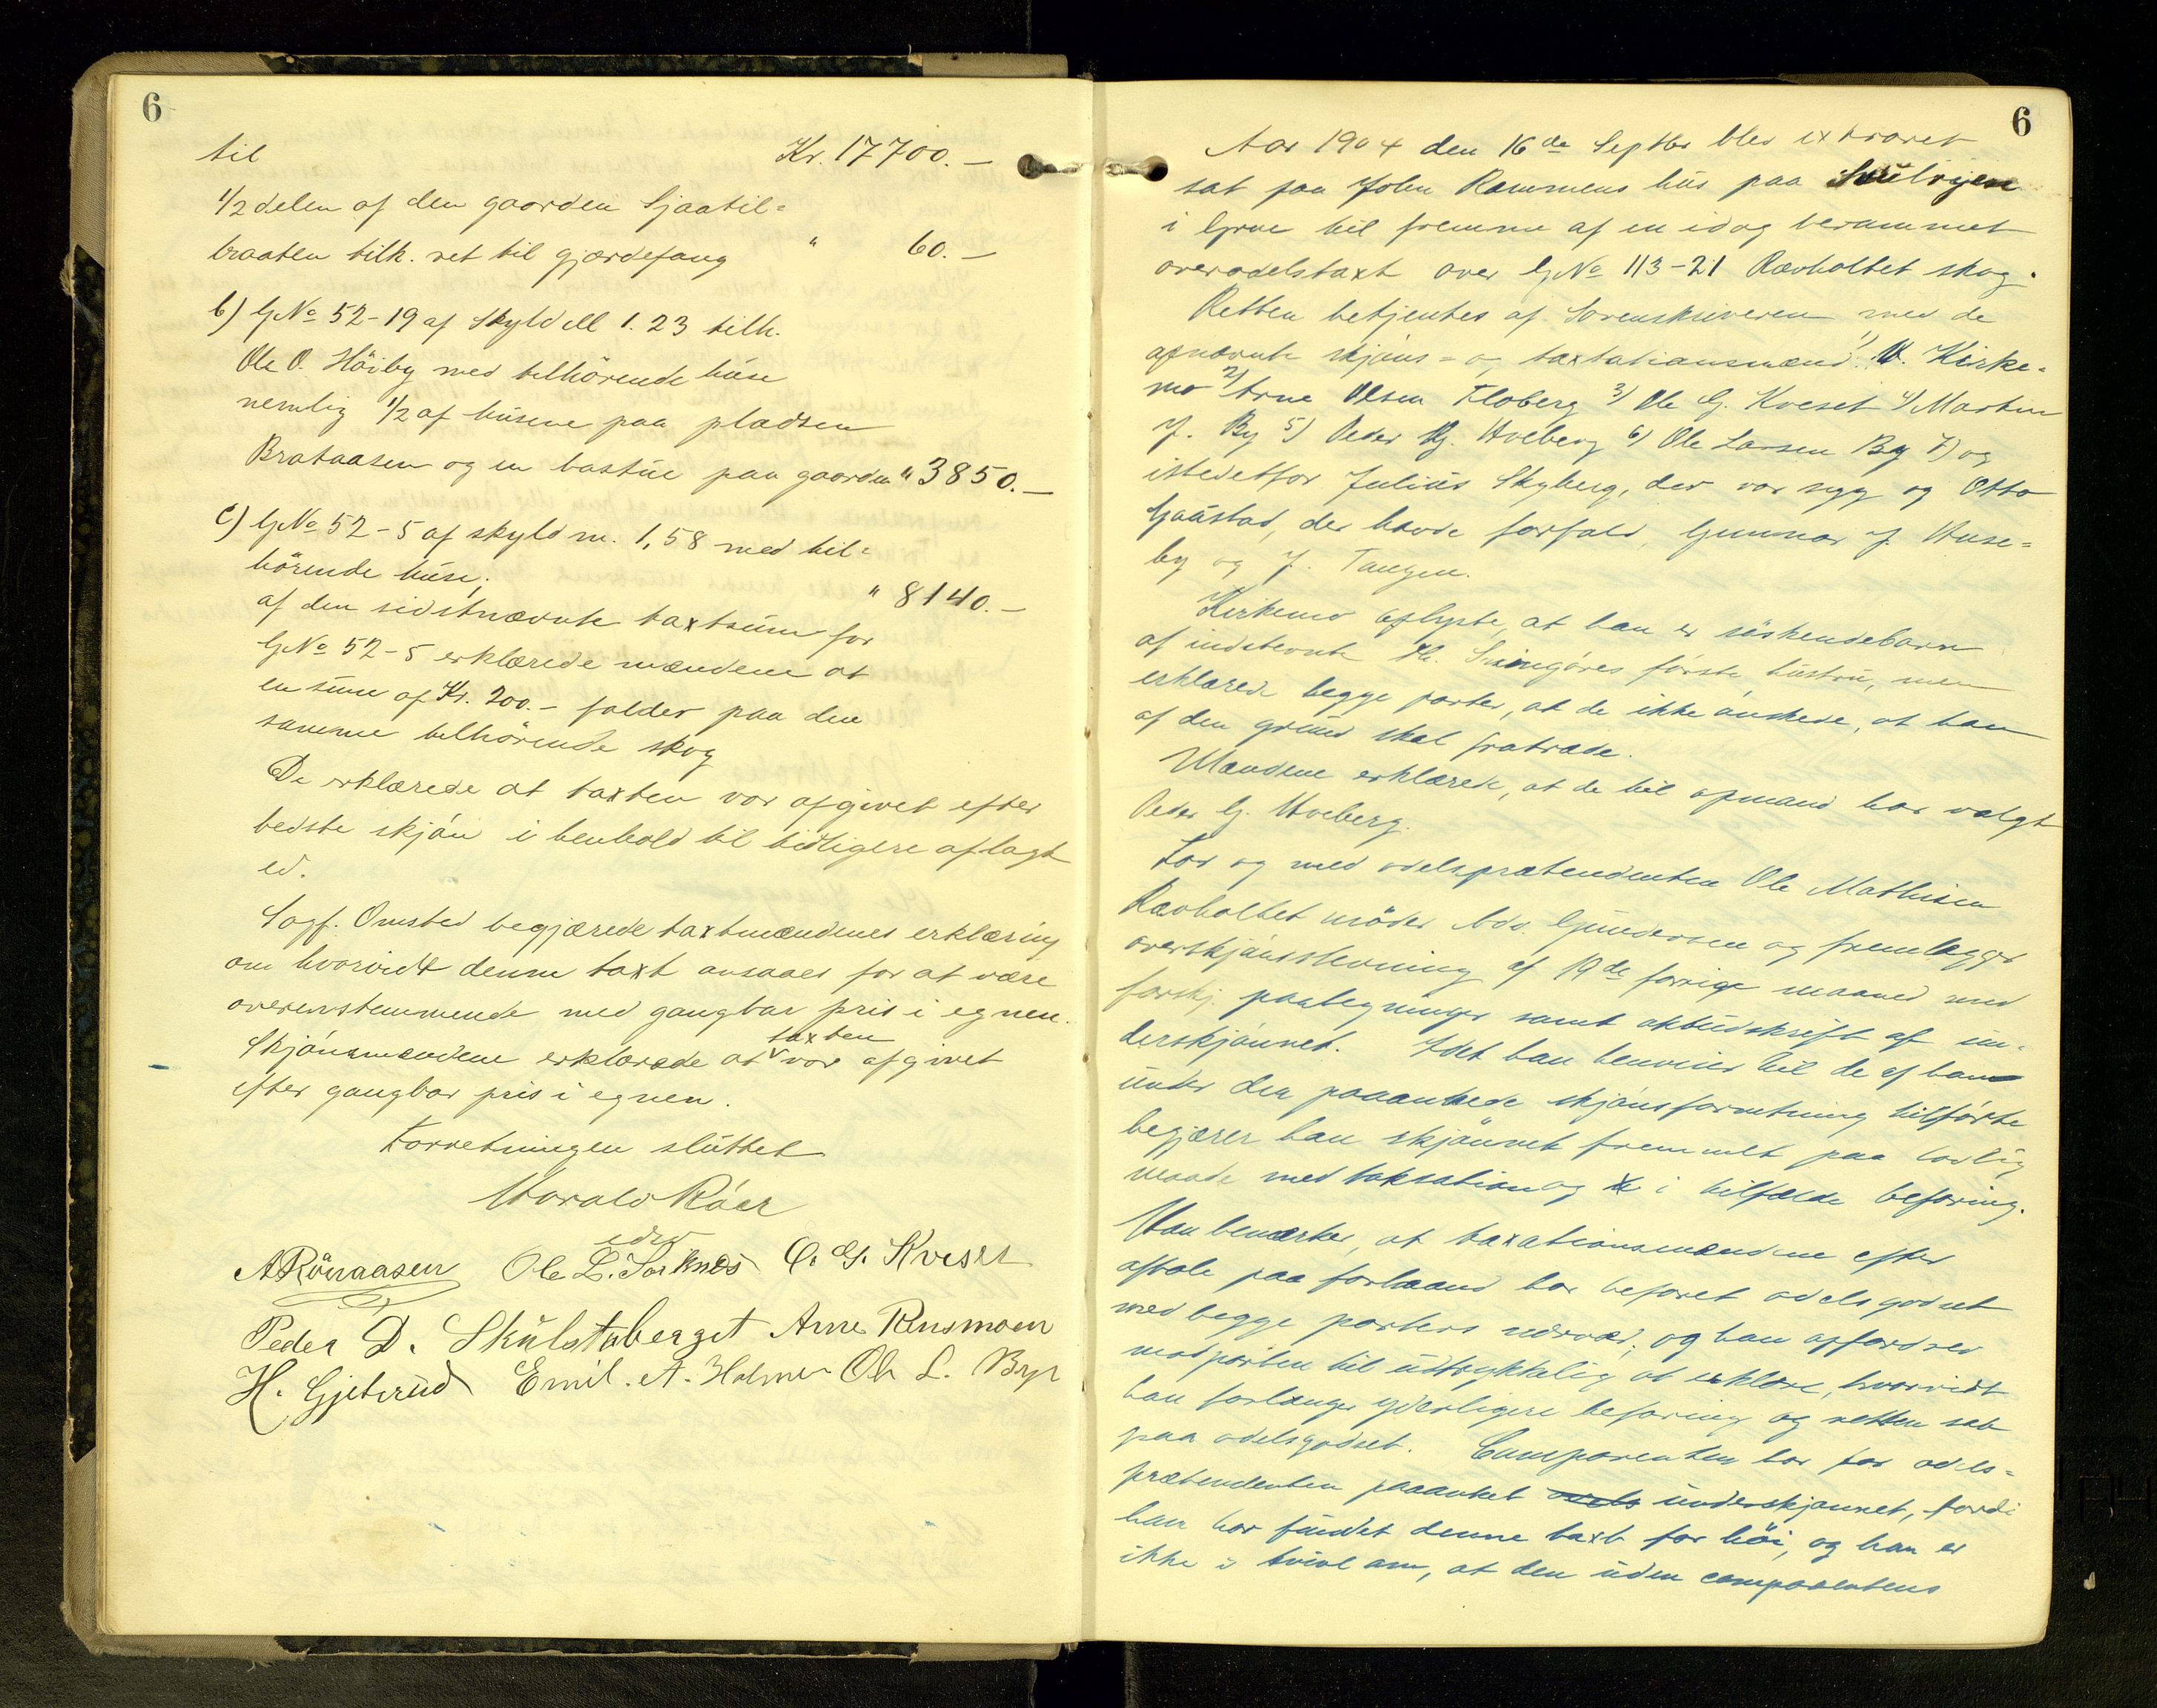 6
til Kr. 17700.—
1/2 delen af den gaarden Sjaatil=
braaten tilh. ret til gjærdefang " 60.—
b) G.No 52-19 af Skyld M 1.23 tilh.
Ole O. Höiby med tilhörende huse
nemlig 1/2 af husene paa pladsen
Brataasen og en bastue paa gaarden " 3850.—
c) G.No 52-5 af skyld m. 1,58 med til=
hörende huse. " 8140.—
af den sidstnævnte taxtsum for
G.No 52-5 erklærede mændene at
en sum af Kr. 200.- falder paa den
samme tilhörende skog
De erklærede at taxten var afgivet efter
bedste skjön i henhold til tidligere aflagt
ed.
Sagf. Omsted begjærede taxtmændenes erklæring
om hvorvidt denne taxt ansaaes for at være
overenstemmende med gangbar pris i egnen.
Skjönsmændene erklærede at taxten var afgivet
efter gangbar pris i egnen.
Forretningen sluttet
Harald Röer
edsv
A Rönaasen Ole L. Sorknes O. G. Kveset
Peder D. Skulstaberget Arne Rensmoen
H. Gjeterud Emil. A. Holmen Ole L. Bye
6
Aar 1904 den 16de Septbr blev extraret
sat paa John Rammens hus paa
i Grue til fremme af en idag berammet
overodelstaxt over G.No 113-21 Ravholtet skog.
Retten betjentes af Sorenskriveren med de
opnævnte skjöns= og taxtationsmænd: 1) H. Kirke=
mo 2) Arne Olsen Floberg 3) Ole G. Kveset 4) Martin
J. By 5) Peder G. Hveberg 6) Ole Larsen By 7) og
istedetfor Julius Skyberg, der var syg og Otto
Gaustad, der havde forfald, Gunnar J. Huse=
by og J. Tangen.
Kirkemo oplyste, at han er söskendebarn
af indstevnte H. Svingöres förste hustru, men
erklærede begge parter, at de ikke önskede, at han
af den grund skal fratræde.
Mændene erklærede, at de til opmand har valgt
Peder G. Hveberg.
For og med odelsprætendenten Ole Mathisen
Ravholtet möder Adv. Gundersen og fremlægger
overskjönsstevning af 19de forrige maaned med
forskj. paategninger samt aktudskrift af un=
derskjönnet. Idet han henviser til de af ham
under den paaankede skjönsforretning tilförte
begjærer han skjönnet fremmet paa lovlig
maade med taksation og i tilfælde befaring.
Han bemærker, at taxationsmændene efter
aftale paa forhaand har befaret odelsgodset
med begge parters nærvær; og han opfordrer
modparten til udtrykkelig at erklære, hvorvidt
han forlanger yderligere befaring og retten sat
paa odelsgodset. Comparenten har for odels=
prætendenten paaanket underskjönnet, fordi
han har fundet denne taxt for höi, og han er
ikke i tvivl om, at den uden comparentens